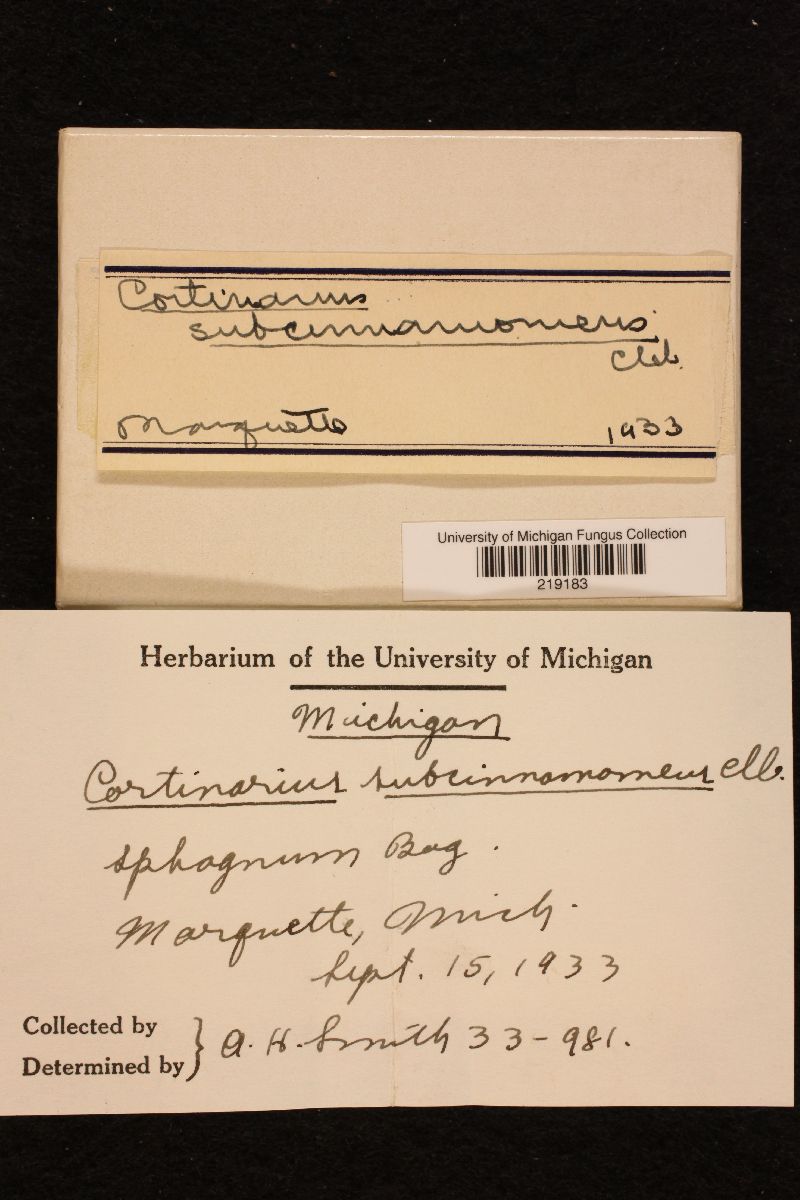 Cortinarius
subcinnamomeus
Marquette 1933
University of Michigan Fungus Collection
219183
Herbarium of the University of Michigan
Michigan
Cortinarius subcinnamomeus
sphagnum Bog.
Marquette, Mich.
Sept. 15, 1933
Collected by
Determined by } A. H. Smith 33-981.